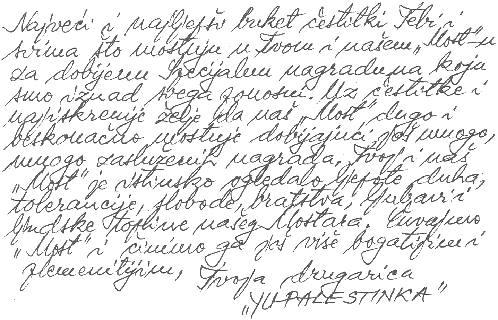 Najveći i najljepši buket čestitki Tebi i
svima što mostuju u Tvom i našem „Most"-u
za dobijenu Specijalnu nagradu na koju
smo iznad svega ponosni. Uz čestitke i
najiskrenije želje da naš „Most" dugo i
beskonačno mostuje dobijajući još mnogo,
mnogo zasluženih nagrada. Tvoj i naš
„Most" je istinsko ogledalo ljepote, duha,
tolerancije, slobode, bratstva, ljubavi i
ljudske topline našeg Mostara. Čuvajmo
„Most" i činimo ga još više bogatijim i
plemenitijim,
Tvoja drugarica
„YU PALESTINKA"